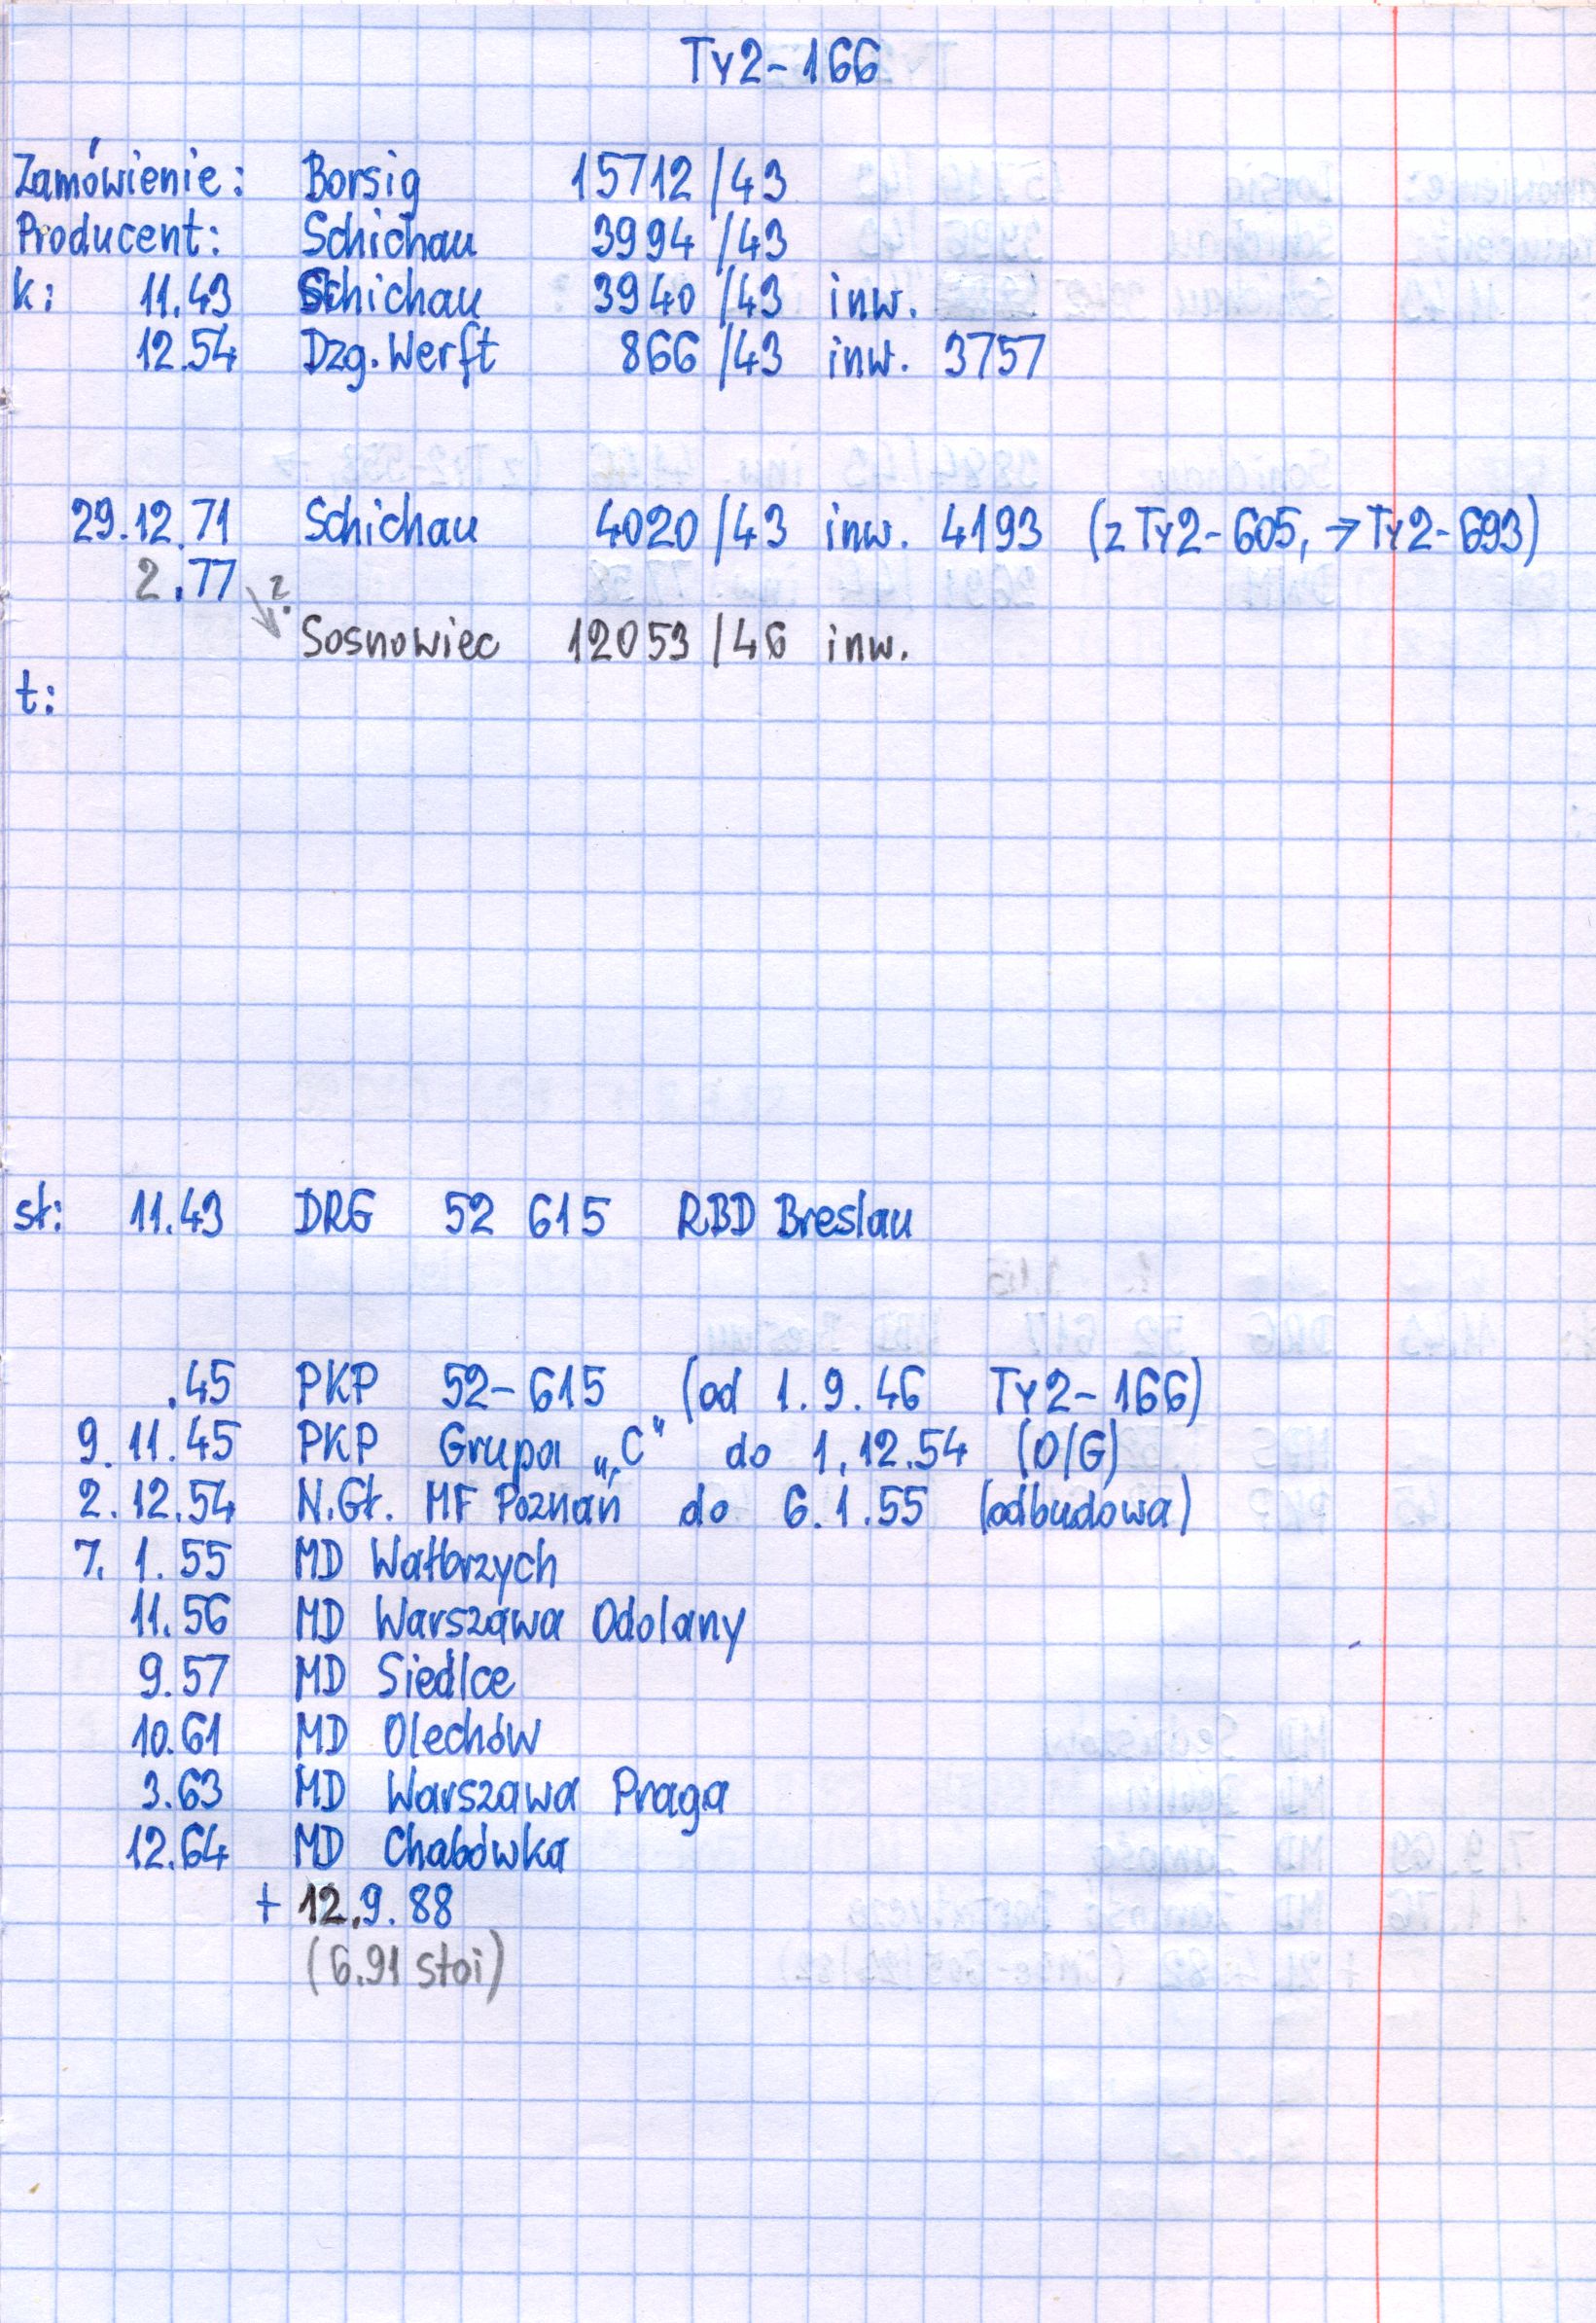 Ty2-166
Zamówienie: Borsig 15712/43
Producent: Schichau 3994/43
k: 11.43 Schichau 3940/43 inw.
12.54 Dzg. Werft 866/43 inw. 3757
29.12.71 Schichau 4020/43 inw. 4193 (z Ty2-605, → Ty2-693)
2.77 ?
Sosnowiec 12053/46 inw.
t:
st: 11.43 DRG 52 615 RBD Breslau
.45 PKP 52-615 (od 1.9.46 Ty2-166)
9.11.45 PKP Grupa „C" do 1.12.54 (O/G)
2.12.54 N.Gł. MF Poznań do 6.1.55 (odbudowa)
7.1.55 MD Wałbrzych
11.56 MD Warszawa Odolany
9.57 MD Siedlce
10.61 MD Olechów
3.63 MD Warszawa Praga
12.64 MD Chabówka
+ 12.9.88
(6.91 stoi)